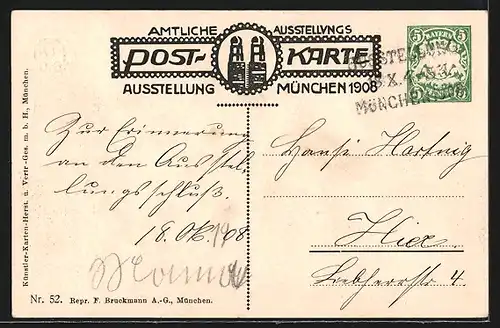 AMTLICHE AUSSTELLUNGS
POST-KARTE
AUSSTELLUNG MÜNCHEN 1908
5 BAYERN 5
AUSSTELLUNG
X.
MÜNCHEN
Zur Erinnerung
an den Ausstel-
lungsschluß.
18. Okt. 1908
Hansi Hartwig
Hier
Liebherrstr. 4.
Künstler-Karten-Herst. u. Vertr.-Ges. m. b. H., München.
Nr. 52. Repr. F. Bruckmann A.-G., München.